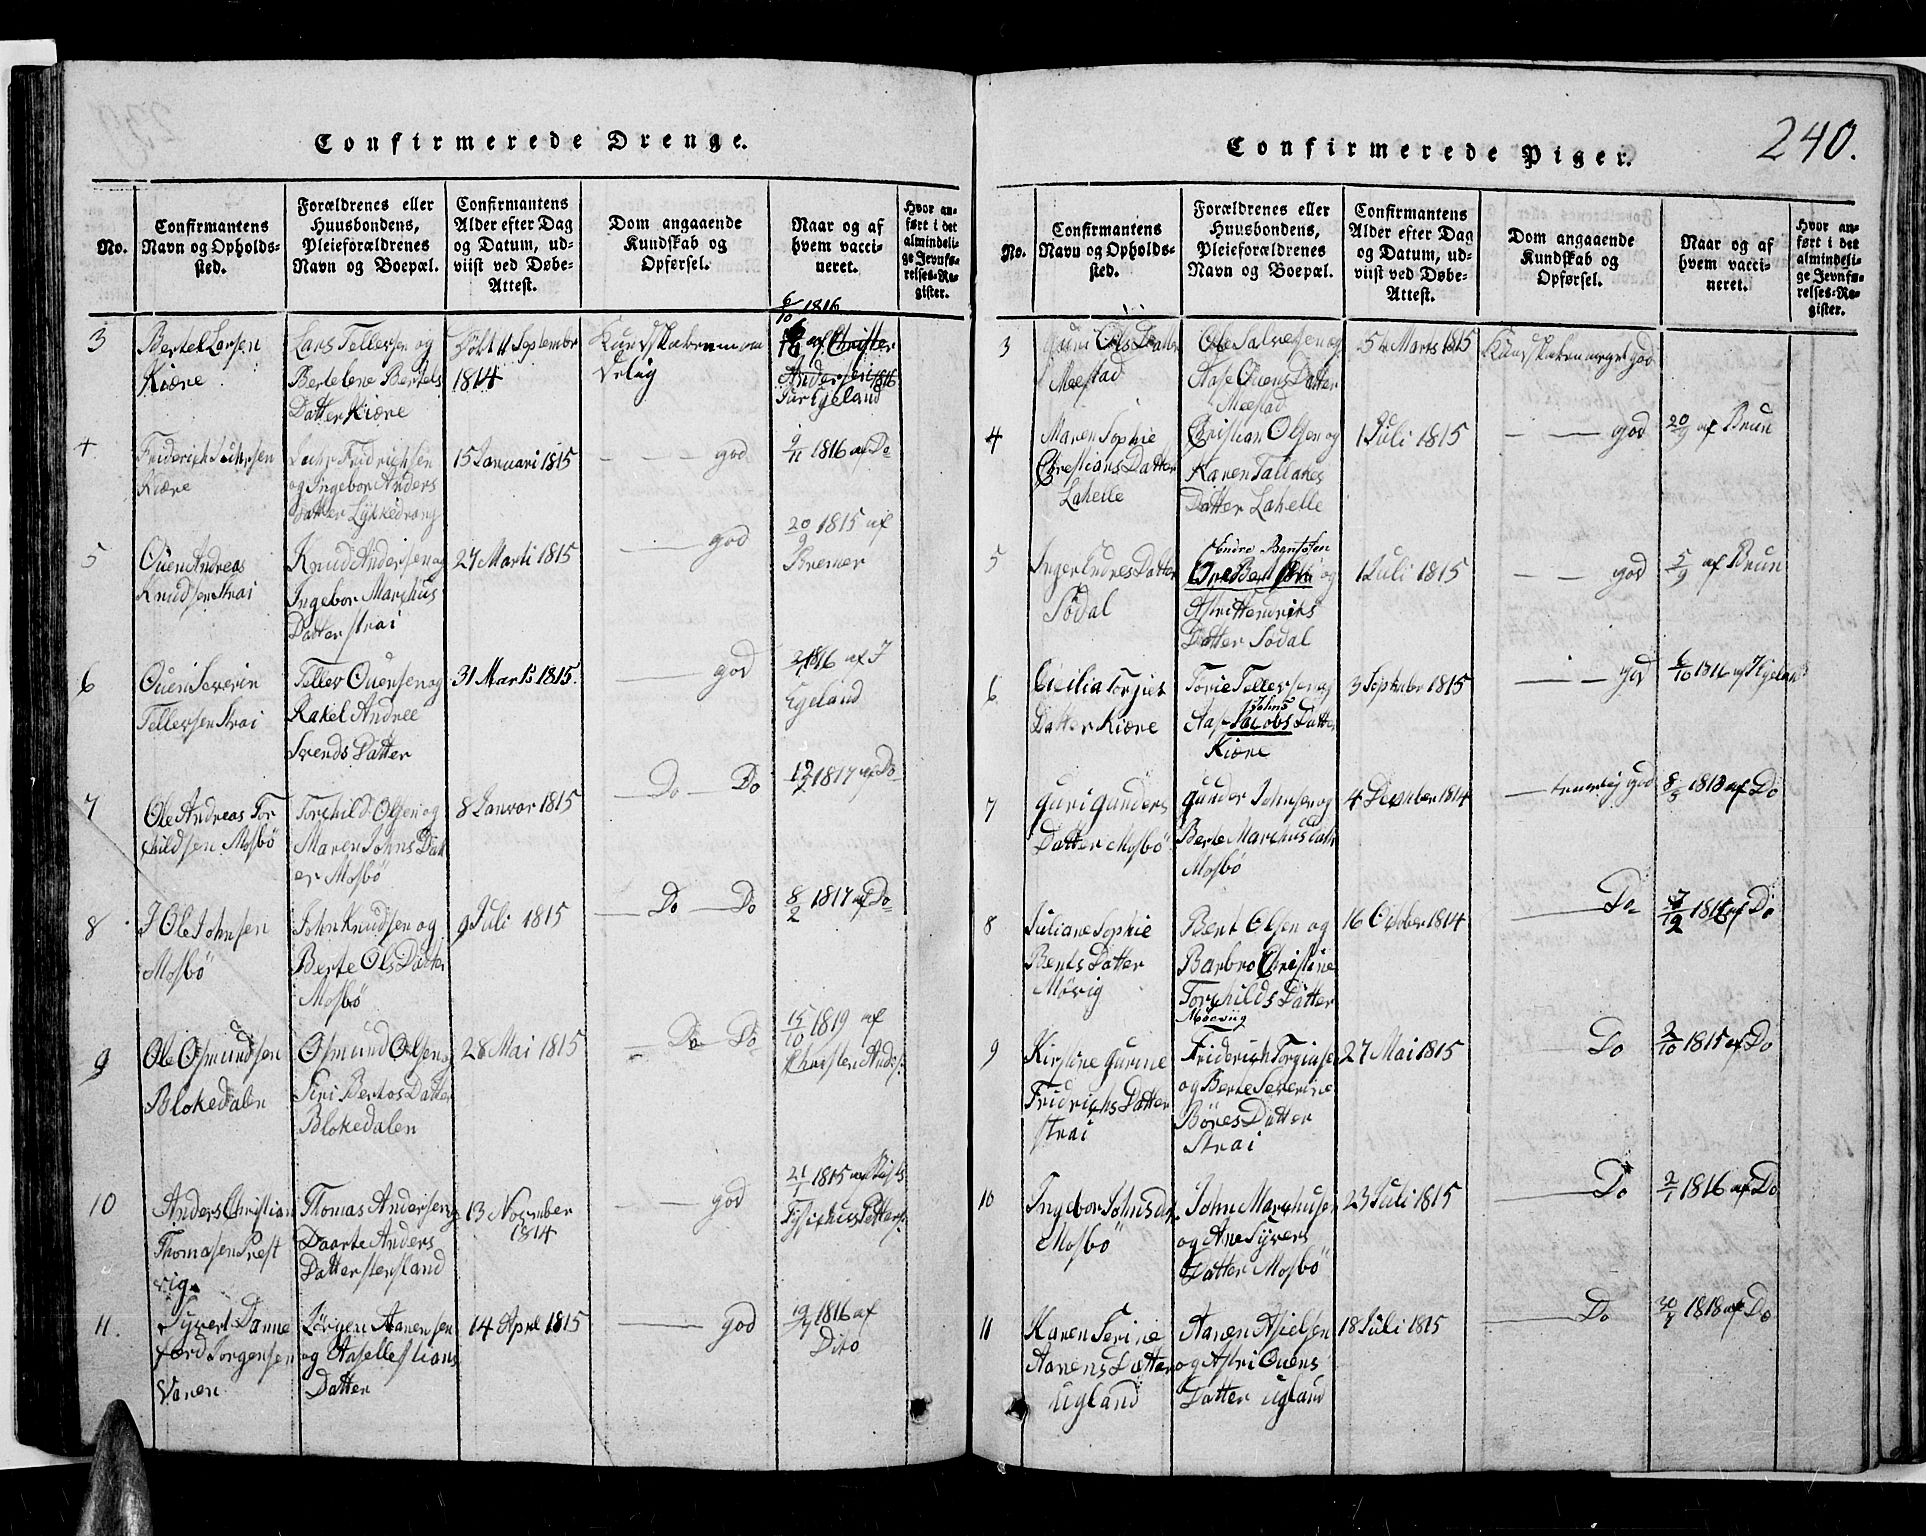 Confirmerede Drenge.
No.
Confirmantens
Navn og Opholds-
sted.
Forældrenes eller
Huusbondens,
Pleieforældrenes
Navn og Boepæl.
Confirmantens
Alder efter Dag
og Datum, ud-
viist ved Døbe-
Attest.
Dom angaaende
Kundskab og
Opførsel.
Naar og af
hvem vacci-
neret.
Hvor an-
ført i det
almindeli-
ge Jevnfø-
relses-Re-
gister.
3
Bertel Larsen
Kiære
Lars Tellefsen og
Bertelene Bertels
Datter Kiære
Døbt 11 September
1814
6/10 1816
6/10 af Christen
Andersen 1816
Egeland
4
Friderich
Kiære
og Ingebor Anders
Datter Lykkedrang
15 Januari 1815
— — — god
9/11 1816 af Do
5
Ouen Andreas
Knudsen Strai
Knud Andersen og
Ingebor Marchus
Datter Strai
27 Marti 1815
— — god
20/9 1815 af
Bremer
6
Ouen Severin
Tellefsen Strai
Tellef Ouensen og
Rakel Andree
Svends Datter
31 Marts 1815.
— — god
1816 af
Egeland
7
Ole Andreas Tor
childsen Mosbö
Torchild Olsen og
Maren Johns Datt
er Mosbö
8 Januar 1815
— Do — Do
12/2 1817 af Do
8
Ole Johnsen
Mosbö
John Knudsen og
Berte Ols Datter
Mosbö
9 Juli 1815
— Do — Do
8/2 1817 af Do
9
Ole Osmundsen
Blokedalen
Osmund Olsen og
Siri Bertos Datter
Blokedalen
28 Mai 1815
— Do — Do
15/10 1819 af
Christen Anders.
10
Anders Christian
Thomasen Prest
vig.
Thomas Andersen og
Daarte Anders
Datter Stensland
13 November
1814
— — god
21/1 1815 af
11.
Syvert Danne
ferd Jorgensen
Vanen
Jörgen Aanensen
og Aaselle Stians
Datter
14 Aprl 1815
— — god
1816 af
Dito
Confirmerede Piger.
240.
No.
Confirmantens
Navn og Opholds-
sted.
Forældrenes eller
Huusbondens,
Pleieforældrenes
Navn og Boepæl.
Confirmantens
Alder efter Dag
og Datum, ud-
viist ved Døbe-
Attest.
Dom angaaende
Kundskab og
Opførsel.
Naar og af
hvem vacci-
neret.
Hvor an-
ført i det
almindeli-
ge Jevnfø-
relses-Re-
gister.
3
Guri Ols Datter
Meestad
Ole Salvesen og
Aase Ouens Datter
Meestad
5te Marts 1815
Kundskaben meget god
4
Maren Sophie
Chrestians Datter
Lahelle
Christian Olsen og
Karen Tallakes
Datter Lahelle
1 Juli 1815
— — god
20/9 af Brun
5
Inger Endres Datter
Södal
Endre Bentsen
og
Astri Hendriks
Datter Södal
1 Juli 1815
— — god
5/9 af Brun
6
Cicilia Torjies
Datter Kiære
Torie Tellefsen og
Johns
Aase Jacobs Datter
Kiære
3 September 1815
— — god
6/10 1816 af Egeland
7
Guri Gunders
Datter Mosbö
Gunder Johnsen og
Berte Marchus Datter
Mosbö
4 December 1814
— god
8/5 1818 af Do
8
Juliane Sophie
Bents Datter
Mörig
Bent Olsen og
Barbro Christine
Torchilds Datter
Moeviig
16 October 1814
— Do
af Do
9
Kirstine Gurine
Fridrichs Datter
Strai
Friderich Torgiusen
og Berte Severine
Böres Datter
Strai
27 Mai 1815
— Do
2/10 1815 af Do
10
Ingebor Johns dat
Mosbö
John Marchusen
og Ane Syvers
Datter Mosbö
23 Juli 1815
— Do
2/1 1816 af Do
11
Karen Serine
Aanens Datter
Ugland
Aanen Asielsen
og Astri Ouens
Datter Ugland
18 Juli 1815
— Do
1818 af Do